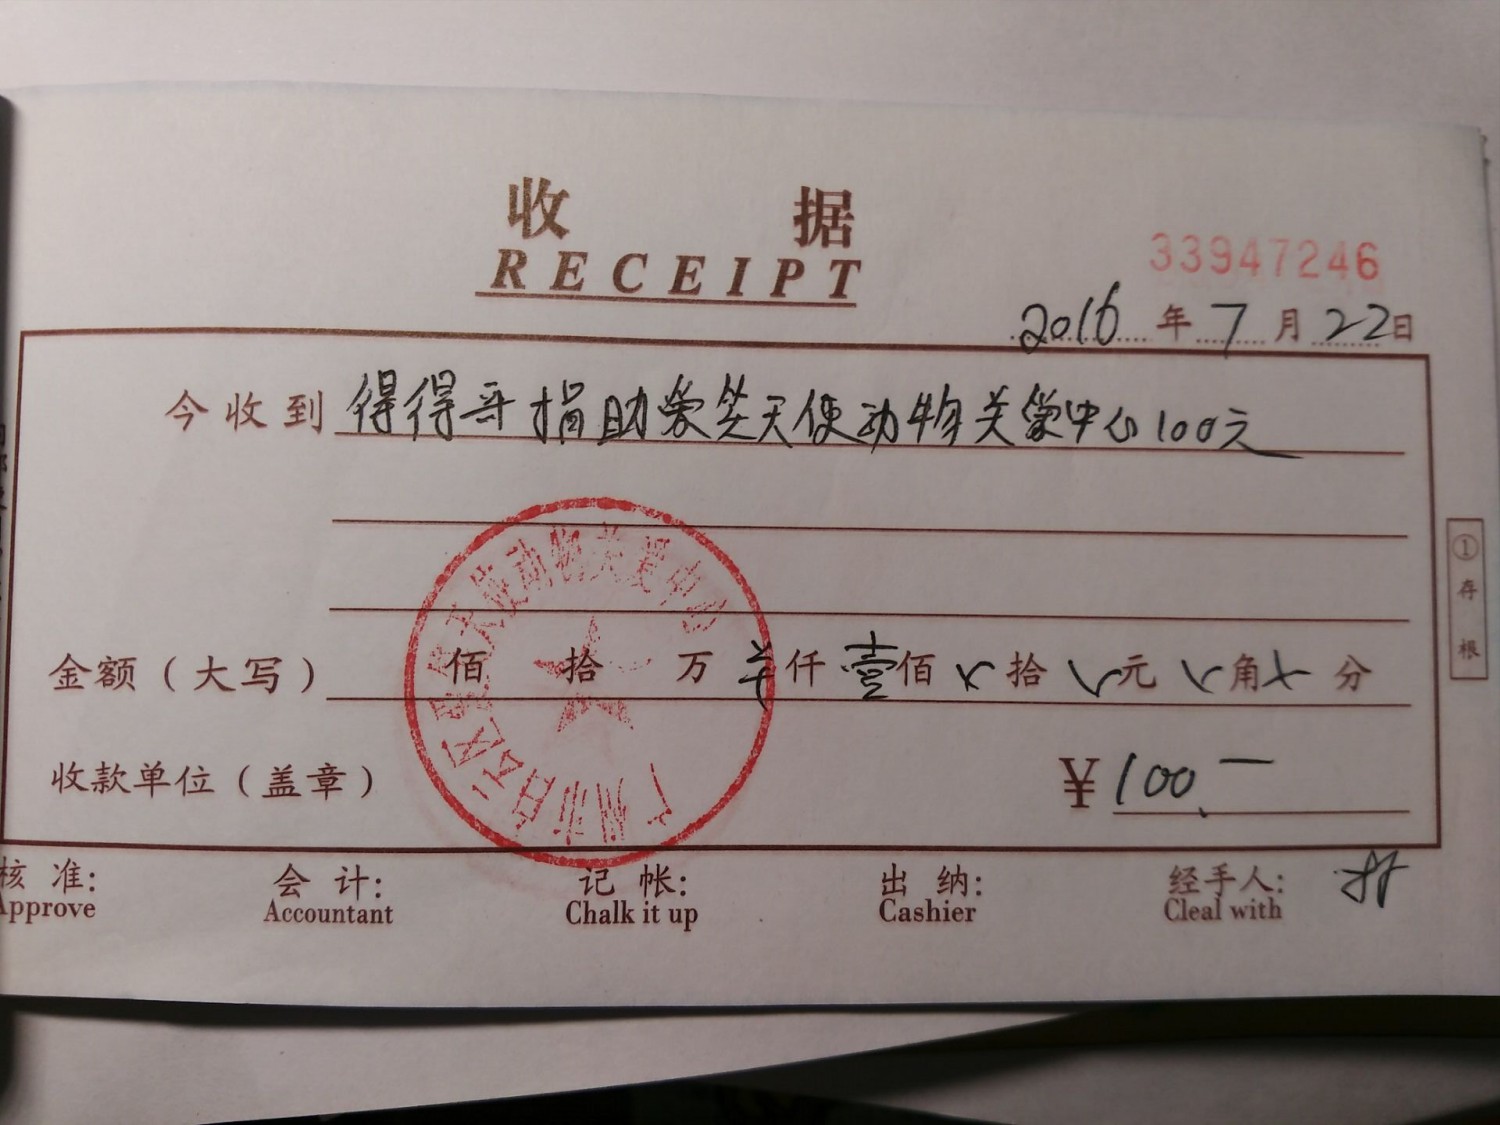 收据
RECEIPT
33947246
2016年7月22日
今收到 得得哥捐助爱笑天使动物关爱中心100元
金额（大写） 佰 拾 万 羊仟 壹佰 ㄨ拾 ㄨ元 ㄨ角 ㄨ分
收款单位（盖章） ¥100.一
广州市白云区爱笑天使动物关爱中心
核准: 会计: 记帐: 出纳: 经手人:
Approve Accountant Chalk it up Cashier Cleal with
①存根